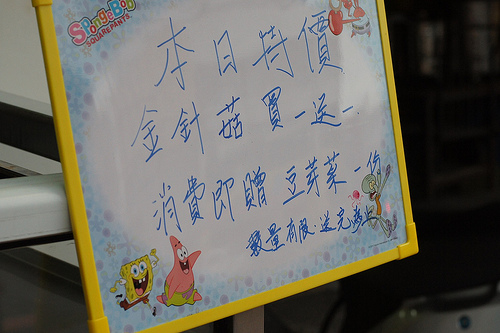 SPongeBob
SQUAREPANTS
本日特價
金針菇買一送一.
消費即贈豆芽菜一份
數量有限.送完為止